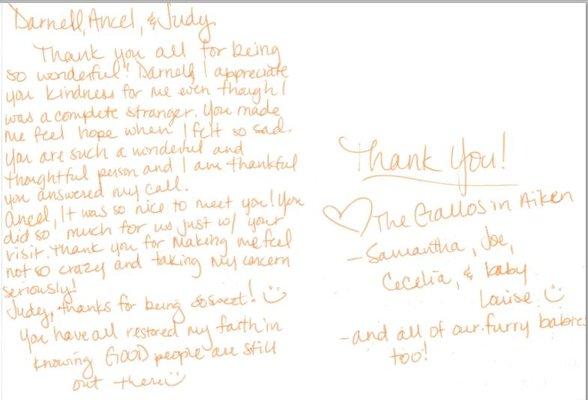 Darnell, Ancel, & Judy,
Thank you all for being
so wonderful! Darnell, I appreciate
you kindness for me even though I
was a complete stranger. You made
me feel hope when I felt so sad.
You are such a wonderful and
thoughtful person and I am thankful
you answered my call.
Ancel, It was so nice to meet you! You
did so much for us just w/ your
visit. Thank you for making me feel
not so crazy and taking my concern
seriously!
Judy, thanks for being so sweet!
You have all restored my faith in
knowing GOOD people are still
out there
Thank You!
The Gallos in Aiken
- Samantha, Joe,
Cecelia, & baby
Louise.
- and all of our furry babies
too!